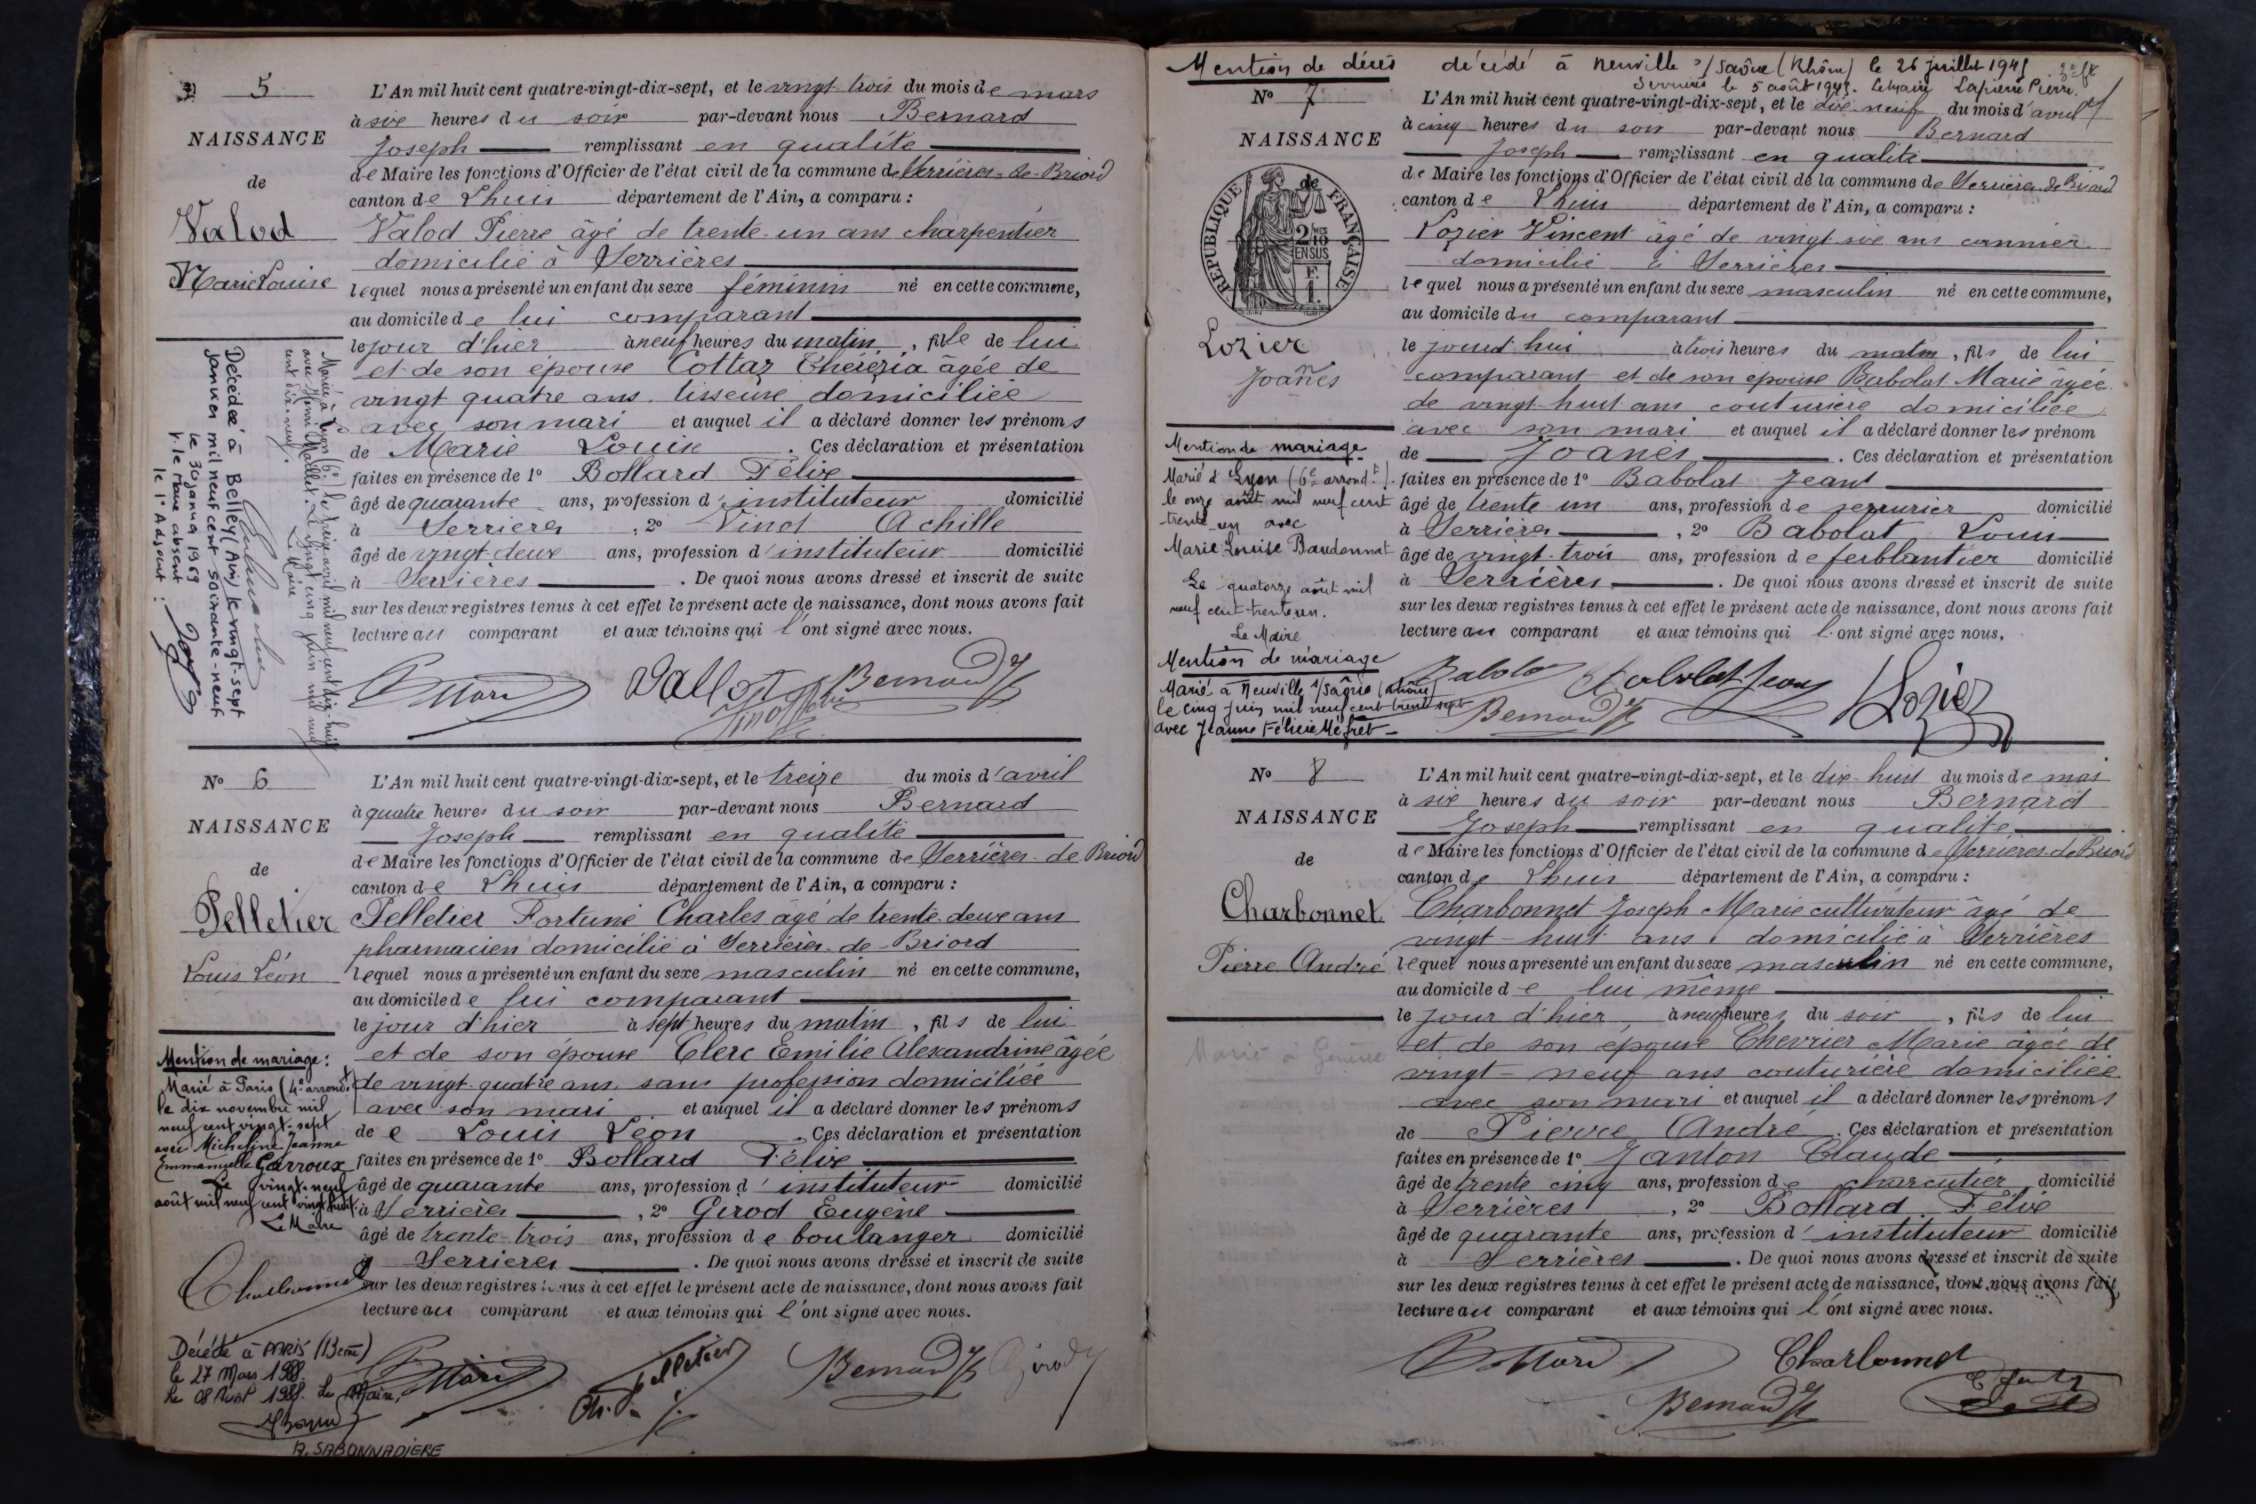 No 5
NAISSANCE
de
Valod
Marie Louise
L'An mil huit cent quatre-vingt-dix-sept, et le vingt trois du mois de mars
à six heures du soir par-devant nous Bernard
Joseph remplissant en qualité
de Maire les fonctions d'Officier de l'état civil de la commune de Serrières-de-Briord
canton de Lhuis département de l'Ain, a comparu :
Valod Pierre âgé de trente-un ans charpentier
domicilié à Serrières
lequel nous a présenté un enfant du sexe féminin né en cette commune,
au domicile de lui comparant
le jour d'hier à neuf heures du matin, fille de lui
et de son épouse Cottaz âgée de
vingt quatre ans tisseuse domiciliée
avec son mari et auquel il a déclaré donner les prénoms
de Marie Louise. Ces déclaration et présentation
faites en présence de 1º Bollard Félix
âgé de quarante ans, profession d'instituteur domicilié
à Serrières, 2º Vinot Achille
âgé de vingt-deux ans, profession d'instituteur domicilié
à Serrières. De quoi nous avons dressé et inscrit de suite
sur les deux registres tenus à cet effet le présent acte de naissance, dont nous avons fait
lecture au comparant et aux témoins qui l'ont signé avec nous.
Mariée à Lyon (6e) le treize avril mil neuf cent dix-huit
avec Henri Maillet. Le vingt cinq juin mil neuf
cent dix-neuf.
Le Maire
Décédée à Belley (Ain) le vingt-sept
janvier mil neuf cent soixante-neuf
le 30 janvier 1969
P. le Maire absent
le 1er Adjoint :
Bollard Vallod Bernard J
No 6
NAISSANCE
de
Pelletier
Louis Léon
L'An mil huit cent quatre-vingt-dix-sept, et le treize du mois d'avril
à quatre heures du soir par-devant nous Bernard
Joseph remplissant en qualité
de Maire les fonctions d'Officier de l'état civil de la commune de Serrières-de-Briord
canton de Lhuis département de l'Ain, a comparu :
Pelletier Fortuné Charles âgé de trente-deux ans
pharmacien domicilié à Serrières-de-Briord
lequel nous a présenté un enfant du sexe masculin né en cette commune,
au domicile de lui comparant
le jour d'hier à sept heures du matin, fils de lui
et de son épouse Clerc Emilie Alexandrine âgée
de vingt-quatre ans sans profession domiciliée
avec son mari et auquel il a déclaré donner les prénoms
de Louis Léon. Ces déclaration et présentation
faites en présence de 1º Bollard Félix
âgé de quarante ans, profession d'instituteur domicilié
à Serrières, 2º Girod Eugène
âgé de trente-trois ans, profession de boulanger domicilié
à Serrières. De quoi nous avons dressé et inscrit de suite
sur les deux registres tenus à cet effet le présent acte de naissance, dont nous avons fait
lecture au comparant et aux témoins qui l'ont signé avec nous.
Mention de mariage :
Marié à Paris (4e arrondt)
le dix novembre mil
neuf cent vingt-sept
avec Micheline Jeanne
Emmanuelle Garroux
Le vingt-neuf
août mil neuf cent vingt huit.
Le Maire
Charbonnet
Décédé à PARIS (13ème)
le 27 Mars 1988.
Le 08 Avril 1988. Le Maire,
A. SABONNADIERE
Bollard Pelletier Bernard J Girod
Mention de décès décédé à Neuville s/ Saône (Rhône) le 26 juillet 1945
Serrières le 5 août 1945. Le Maire Lapierre Pierre
No 7
NAISSANCE
de
RÉPUBLIQUE FRANÇAISE
2/10 EN SUS
Lozier
Joanès
L'An mil huit cent quatre-vingt-dix-sept, et le dix-neuf du mois d'avril
à cinq heures du soir par-devant nous Bernard
Joseph remplissant en qualité
de Maire les fonctions d'Officier de l'état civil de la commune de Serrières de Briord
canton de Lhuis département de l'Ain, a comparu :
Lozier Vincent âgé de vingt six ans
domicilié à Serrières
lequel nous a présenté un enfant du sexe masculin né en cette commune,
au domicile du comparant
le jourd'hui à trois heures du matin, fils de lui
comparant et de son épouse Babolat Marie âgée
de vingt-huit ans couturière domiciliée
avec son mari et auquel il a déclaré donner les prénom
de Joanès. Ces déclaration et présentation
faites en présence de 1º Babolat Jean
âgé de trente un ans, profession de serrurier domicilié
à Serrières, 2º Babolat Louis
âgé de vingt-trois ans, profession de ferblantier domicilié
à Serrières. De quoi nous avons dressé et inscrit de suite
sur les deux registres tenus à cet effet le présent acte de naissance, dont nous avons fait
lecture au comparant et aux témoins qui l'ont signé avec nous.
Mention de mariage
Marié à Lyon (6e arrondt).
le onze août mil neuf cent
trente-un avec
Marie Louise Baudonnat
Le quatorze août mil
neuf cent trente un.
Le Maire
Mention de mariage
Marié à Neuville s/ Saône (Rhône)
le cinq juin mil neuf cent trente sept
avec Jeanne Félicie Méfret
Babolat Babolat Jean Lozier
Bernard J
No 8
NAISSANCE
de
Charbonnet
Pierre André
Marié à Genève
L'An mil huit cent quatre-vingt-dix-sept, et le dix-huit du mois de mai
à six heures du soir par-devant nous Bernard
Joseph remplissant en qualité
de Maire les fonctions d'Officier de l'état civil de la commune de Serrières de Briord
canton de Lhuis département de l'Ain, a comparu :
Charbonnet Joseph Marie cultivateur âgé de
vingt-huit ans domicilié à Serrières
lequel nous a présenté un enfant du sexe masculin né en cette commune,
au domicile de lui même
le jour d'hier à neuf heures du soir, fils de lui
et de son épouse Chevrier Marie âgée de
vingt-neuf ans couturière domiciliée
avec son mari et auquel il a déclaré donner les prénoms
de Pierre André. Ces déclaration et présentation
faites en présence de 1º Janton Claude
âgé de trente cinq ans, profession de charcutier domicilié
à Serrières, 2º Bollard Félix
âgé de quarante ans, profession d'instituteur domicilié
à Serrières. De quoi nous avons dressé et inscrit de suite
sur les deux registres tenus à cet effet le présent acte de naissance, dont nous avons fait
lecture au comparant et aux témoins qui l'ont signé avec nous.
Bollard Charbonnet
Bernard J